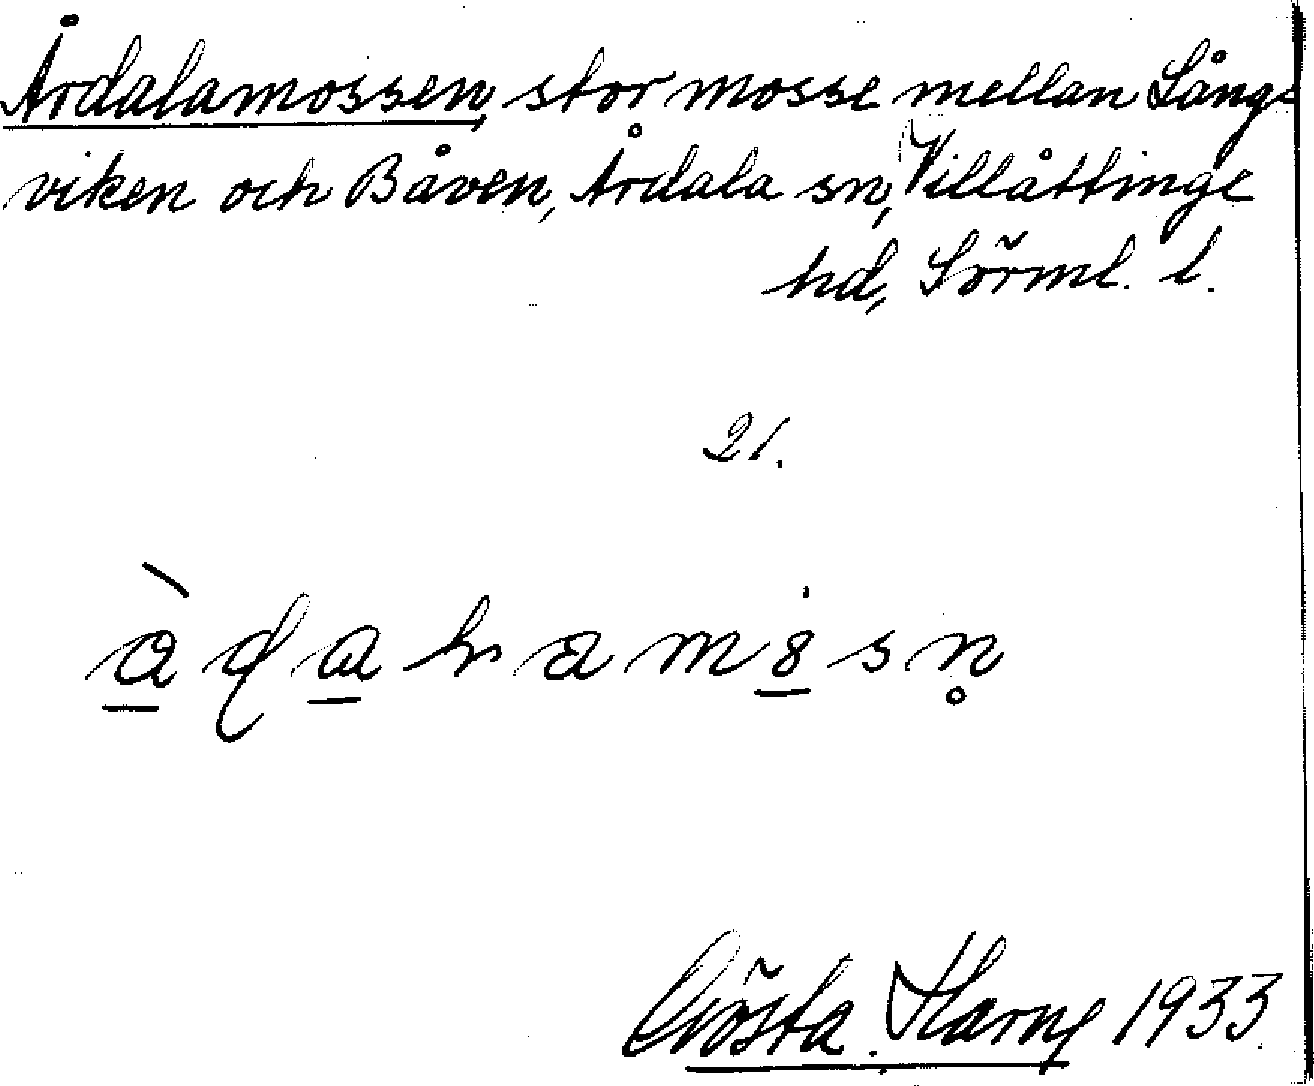 Årdalamossen, stor mosse mellan Långs-
viken och Båven, Årdala sn, Villåttinge
hd, Sörml. l.
21.
Gösta 1933.